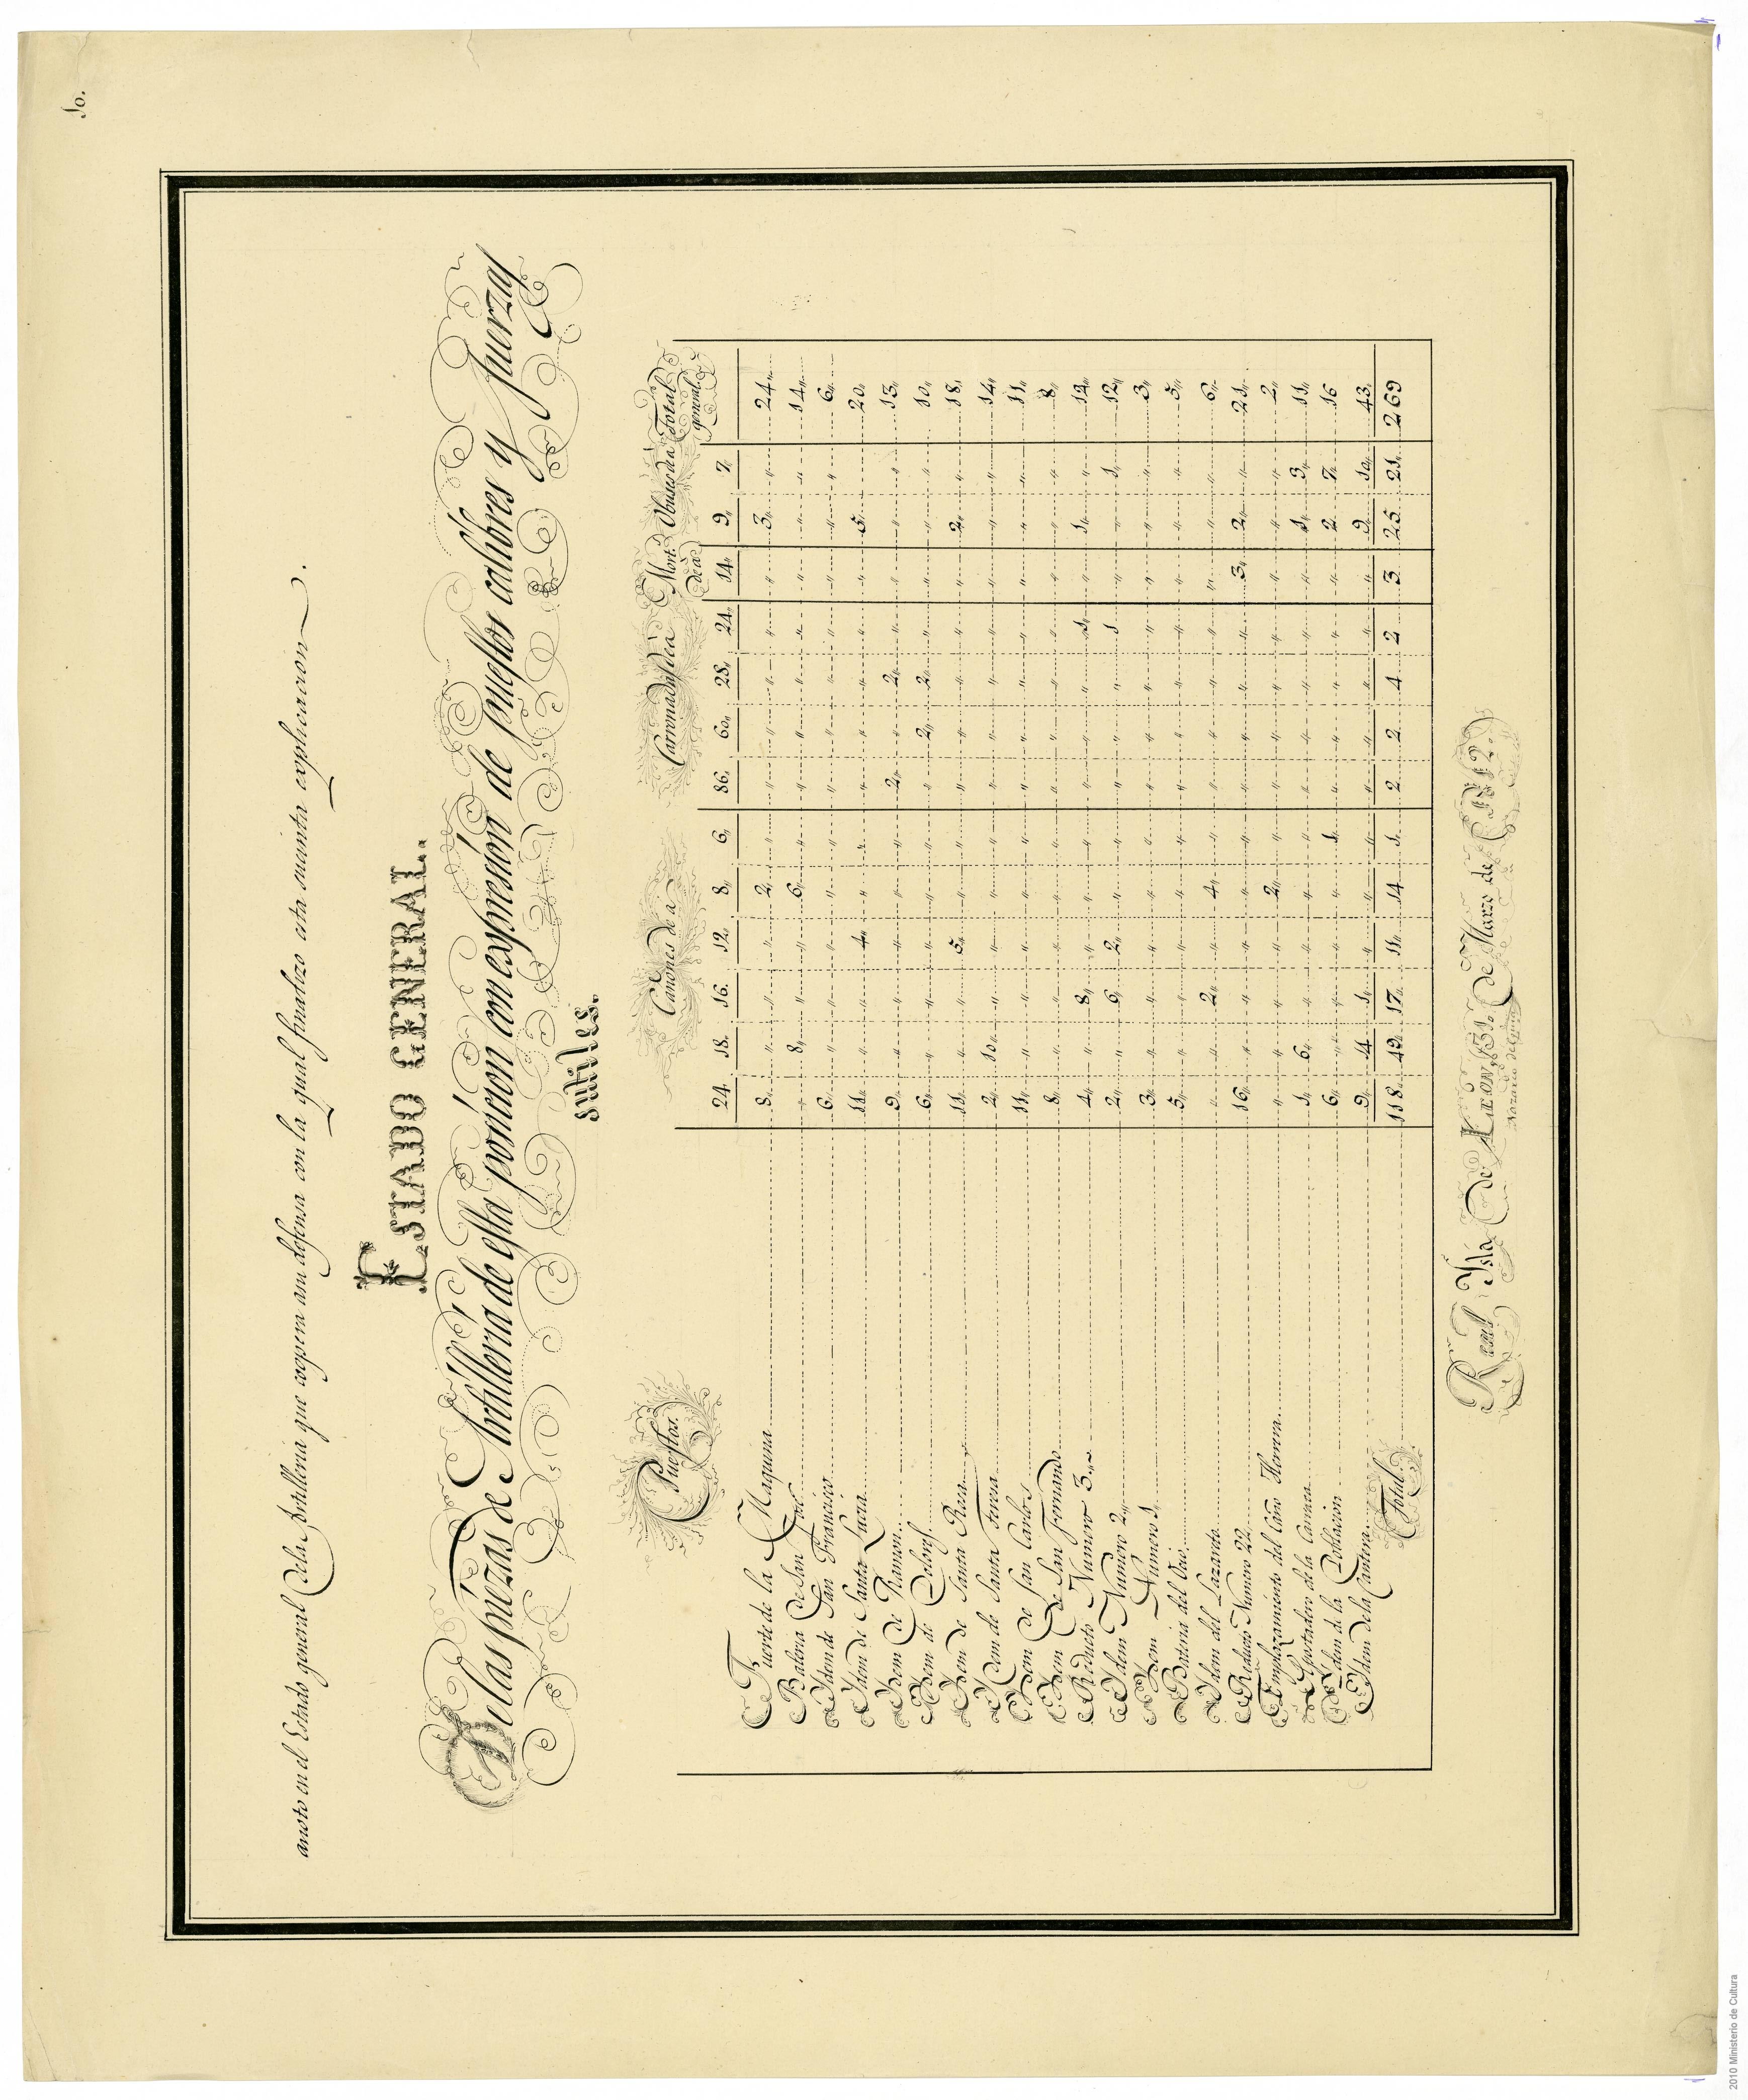 10.
anoto en el Estado general de la Artilleria que coopera a su defensa con la qual finalizo esta sucinta explicacion.
ESTADO GENERAL.
De las piezas de Artilleria de esta posicion con expresion de puestos calibres y fuerzas
sutiles.
Puestos. Cañones de à Carronadas de à Mort.s de à Obuses de à Total general.
24. 18. 16. 12. 8. 6. 86. 60. 28. 24. 14. 9. 7.
Fuerte de la Maquina 8 " " " 2 " " " " " " 3 " 24
Bateria de San " 8 " " 6 " " " " " " " " 14
Idem de San Francisco 6 " " " " " " " " " " " " 6
Idem de Santa Lucia 11 " " 4 " " " " " " " 5 20
Idem de Ramon 9 " " " " " 2 " 2 " " " " 13
Idem de Dolores 6 " " " " " " 2 2 " " " " 10
Idem de Santa Rosa 11 " " 5 " " " " " " " 2 " 18
Idem de Santa Teresa 2 10 " " " " " " " " " " " 14
Idem de San Carlos 11 " " " " " " " " " " " " 11
Idem de San Fernando 8 " " " " " " " " " " " " 8
Reducto Numero 3 4 " 8 " " " " " " 1 " 1 "
Idem Numero 2 2 " 6 2 " " " " " 1 " " 1 12
Idem Numero 1 3 " " " " " " " " " " " " 3
Bateria del 5 " " " " " " " " " " " " 5
Idem del Lazareto " " 2 " 4 " " " " " " " " 6
Reducto Numero 22 16 " " " " " " " " " 3 2 " 21
Emplazamiento del Caño Herrera " " " " 2 " " " " " " " " 2
Apostadero de la Carraca 1 6 " " " " " " " " " 1 3 11
Idem de la Poblacion 6 " " " " 1 " " " " " 2 7 16
Idem de la Cantera 9 14 1 " " " " " " " " 9 10 43
Total. 118 42 17 11 14 1 2 2 4 2 3 25 21 269
Real Isla de Leon 31 de Marzo de 1812.
2010 Ministerio de Cultura